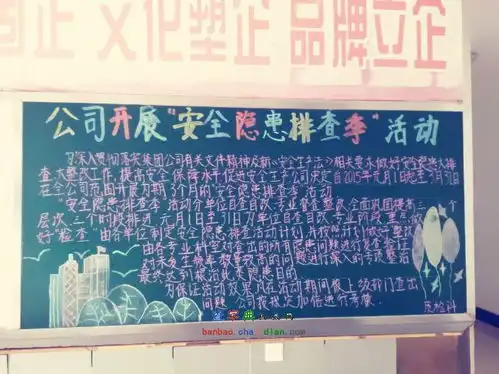 固企 文化塑企 品牌立企
公司开展"安全隐患排查季"活动
为深入贯彻落实集团公司有关文件精神及新《安全生产法》相关要求做好安全隐患大排
查大整改工作,提高安全保障水平促进安全生产公司决定自2015年元月1日起至3月31日
在全公司范围开展为期3个月的"安全隐患排查季"活动
"安全隐患排查季"活动分单位自查自改、专业督查整改、全面巩固提高三个
层次三个时段推进 元月1日至31日为单位自查自改、专业阶段重点做
好"检查"由各单位制定安全隐患排查活动计划并按照计划做好整改
由各专业科室对查出的所有隐患问题进行复查验证
对未发生频率较高的问题进行深入的考政整治
最终达到根治此类隐患目的
为保证活动效果凡在活动期间被上级部门查出
问题 公司按找次加倍进行考核
质检科
banbao.chazidian.com